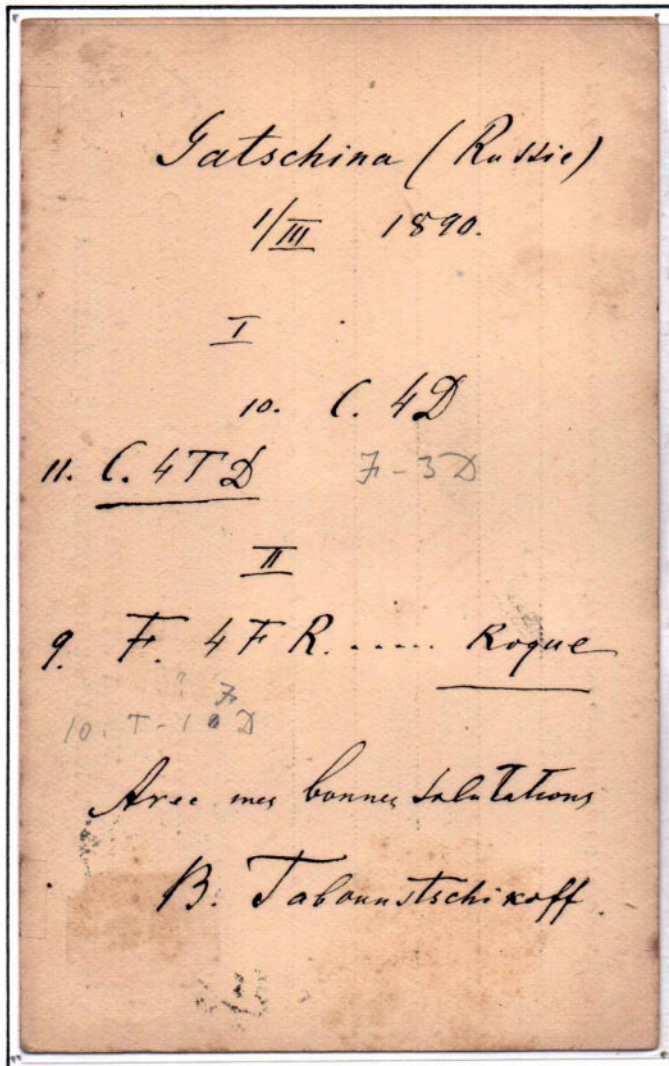 Gatschina (Russie)
1/III 1890.
I
10. C. 4D
11. C. 4TD F-3D
II
9. F. 4FR..... Roque
F
10. T-1 D
Avec mes bonnes salutations
B. Tabounstschikoff.